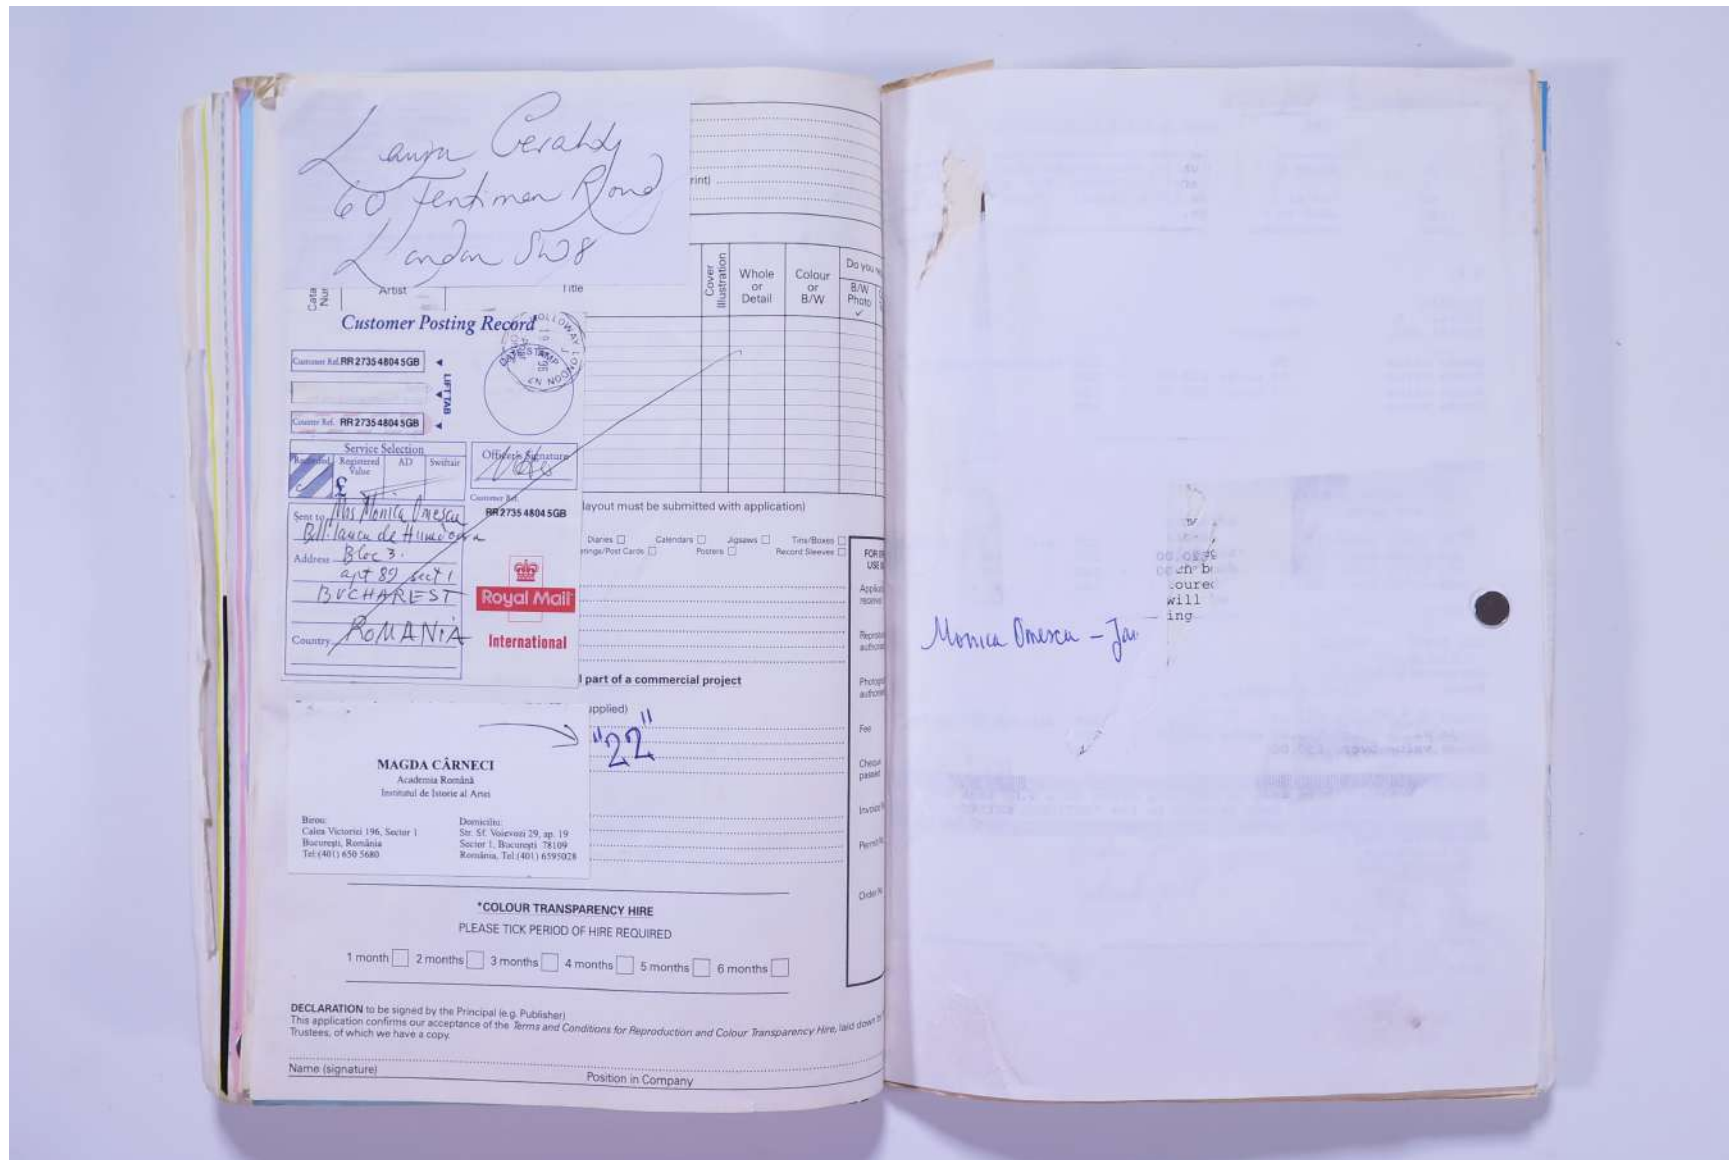 60 Fentiman Road
London SW8
rint)
Cata
Nur
Artist
Title
Cover
Illustration
Whole
or
Detail
Colour
or
B/W
Do you
B/W
Photo
✓
Customer Posting Record
HOLLOWAY LONDON
DATE STAMP
N7
Customer Ref. RR 2735 4804 5GB
LIFT TAB
Counter Ref. RR 2735 4804 5GB
Service Selection
Recorded
Registered
Value
£
AD
Swiftair
Officer's Signature
Customer Ref.
RR 2735 4804 5GB
Sent to Mrs Monica Omescu
de
Address Bloc 3.
apt 89 sect 1
BUCHAREST
Country ROMANIA
Royal Mail
International
layout must be submitted with application)
Diaries
Calendars
Jigsaws
Tins/Boxes
rings/Post Cards
Posters
Record Sleeves
FOR
USE
part of a commercial project
upplied)
"22"
Fee
MAGDA CÂRNECI
Academia Română
Institutul de Istorie al Artei
Birou:
Calea Victoriei 196, Sector 1
Bucureşti, România
Tel:(401) 650 5680
Domiciliu:
Str. Sf. Voievozi 29, ap. 19
Sector 1, Bucureşti 78109
România, Tel:(401) 6595028
*COLOUR TRANSPARENCY HIRE
PLEASE TICK PERIOD OF HIRE REQUIRED
1 month 2 months 3 months 4 months 5 months 6 months
DECLARATION to be signed by the Principal (e.g. Publisher)
This application confirms our acceptance of the Terms and Conditions for Reproduction and Colour Transparency Hire, laid down
Trustees, of which we have a copy.
Name (signature)
Position in Company
oured
will
ing
Monica Omescu – Jan